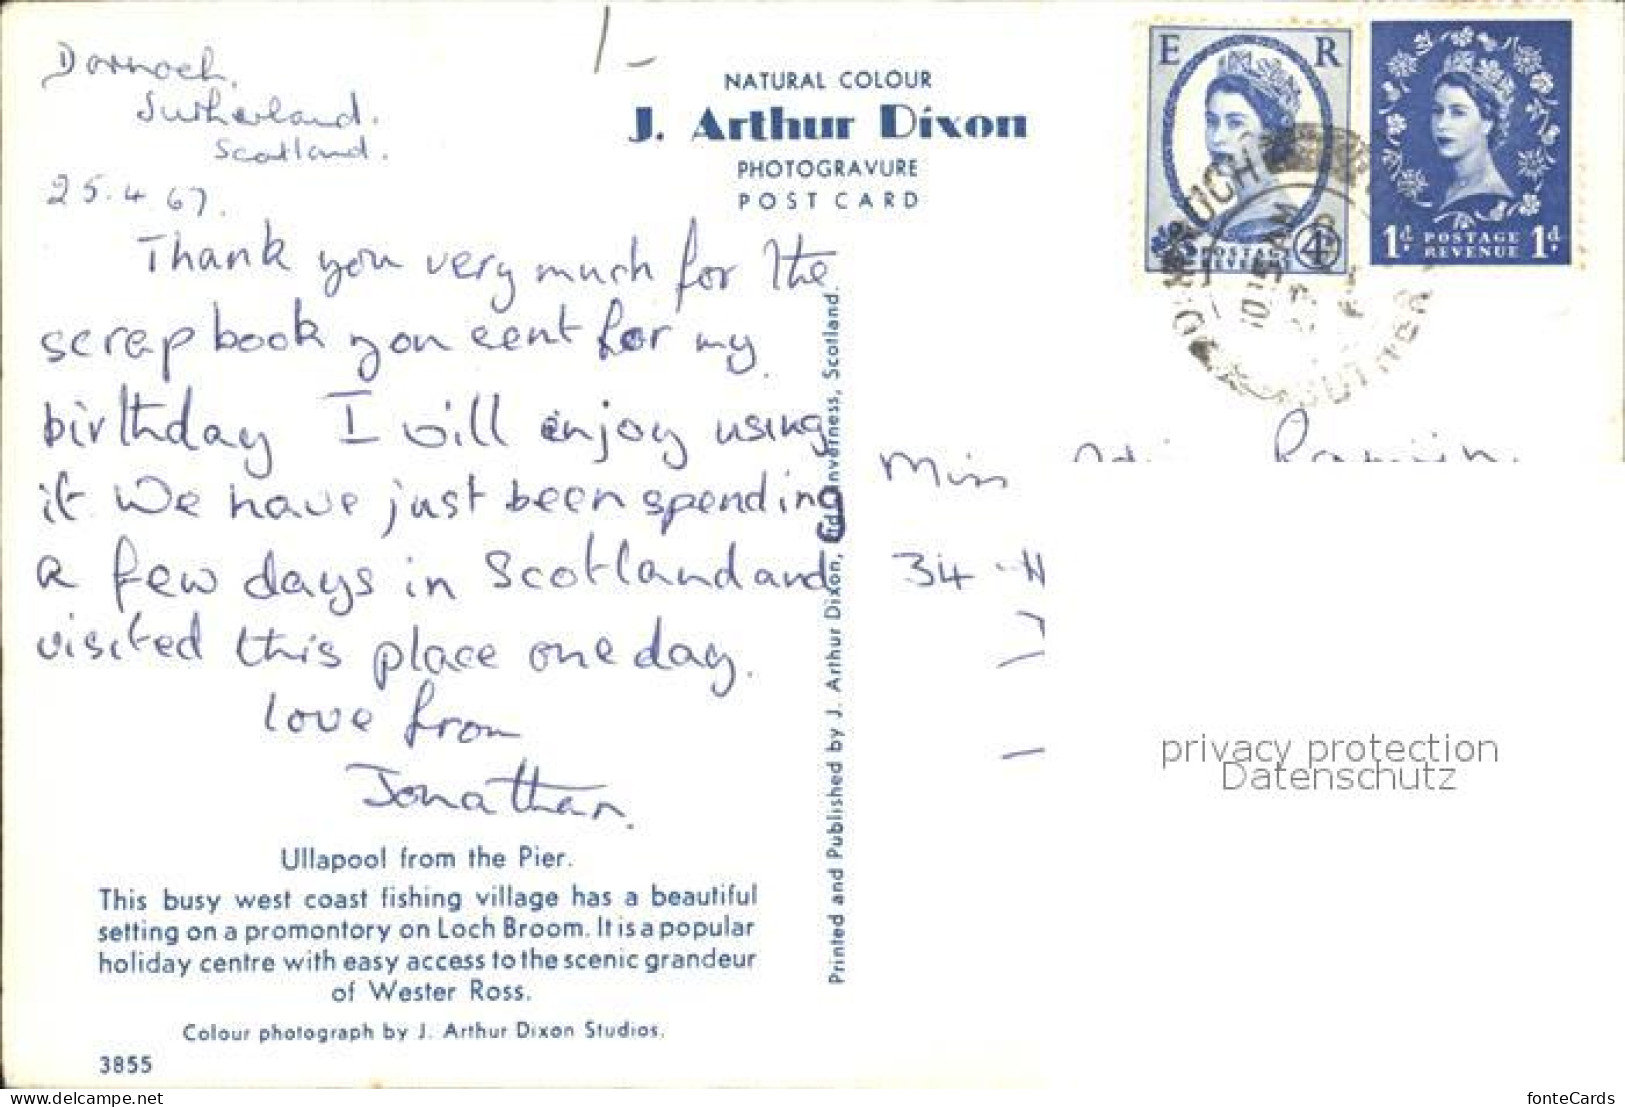 Dornoch.
Sutherland.
Scotland.
25.4.67.
Thank you very much for the
scrap book you sent for my
birthday I will enjoy using
it. We have just been spending
a few days in Scotland and
visited this place one day.
love from
Jonathan.
Ullapool from the Pier.
This busy west coast fishing village has a beautiful
setting on a promontory on Loch Broom. It is a popular
holiday centre with easy access to the scenic grandeur
of Wester Ross.
Colour photograph by J. Arthur Dixon Studios.
3855
1/-
NATURAL COLOUR
J. Arthur Dixon
PHOTOGRAVURE
POST CARD
Printed and Published by J. Arthur Dixon, Ltd., Inverness, Scotland.
E R
POSTAGE
REVENUE
4d
1d POSTAGE 1d
REVENUE
DORNOCH
10 15 AM
SUTHER
Miss
34
privacy protection
Datenschutz
www.delcampe.net
fonteCards